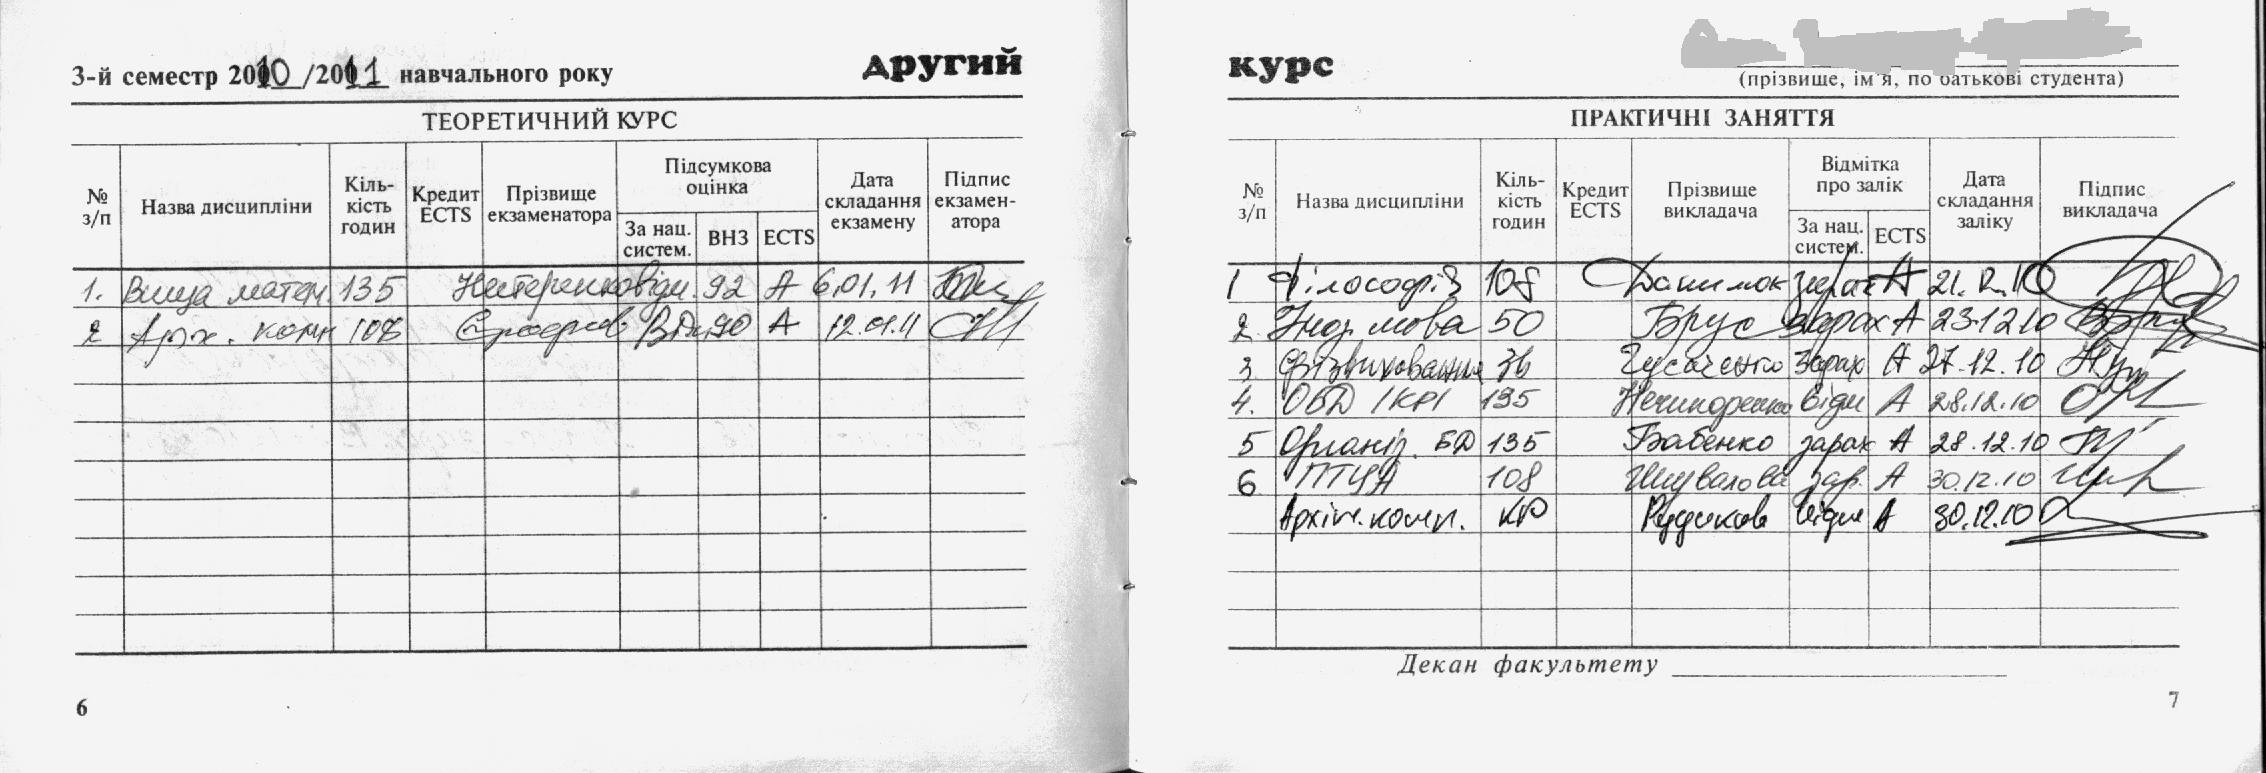 3-й семестр 2010/2011 навчального року
другий
ТЕОРЕТИЧНИЙ КУРС
№ з/п
Назва дисципліни
Кіль-
кість
годин
Кредит
ECTS
Прізвище
екзаменатора
Підсумкова
оцінка
За нац.
систем.
ВНЗ
ECTS
Дата
складання
екзамену
Підпис
екзамен-
атора
1. Вища матем. 135 Нестеренко відм. 92 A 6.01.11
2 Арх. комп 108 Відм. 90 A 12.01.11
6
курс
(прізвище, ім'я, по батькові студента)
ПРАКТИЧНІ ЗАНЯТТЯ
№ з/п
Назва дисципліни
Кіль-
кість
годин
Кредит
ECTS
Прізвище
викладача
Відмітка
про залік
За нац.
систем.
ECTS
Дата
складання
заліку
Підпис
викладача
1 Філософія 108 Данилюк зарах A 21.12.10
2 Іноз. мова 50 Брус зарах A 23.12.10
3 Фізвиховання 36 Гусаченко зарах A 27.12.10
4. ОБД /КР/ 135 Нечипоренко відм A 28.12.10
5 Організ. БД 135 Бабенко зарах A 28.12.10
6 ПТЦА 108 Шувалова зар. A 30.12.10
Архіт. комп. КР Рудакова відм A 30.12.10
Декан факультету
7